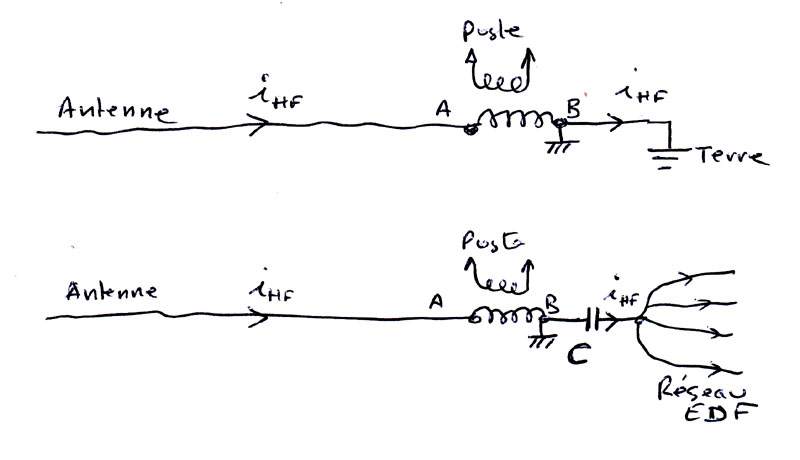 Poste
Antenne iHF A B iHF
Terre
Poste
Antenne iHF A B iHF
C
Réseau
EDF